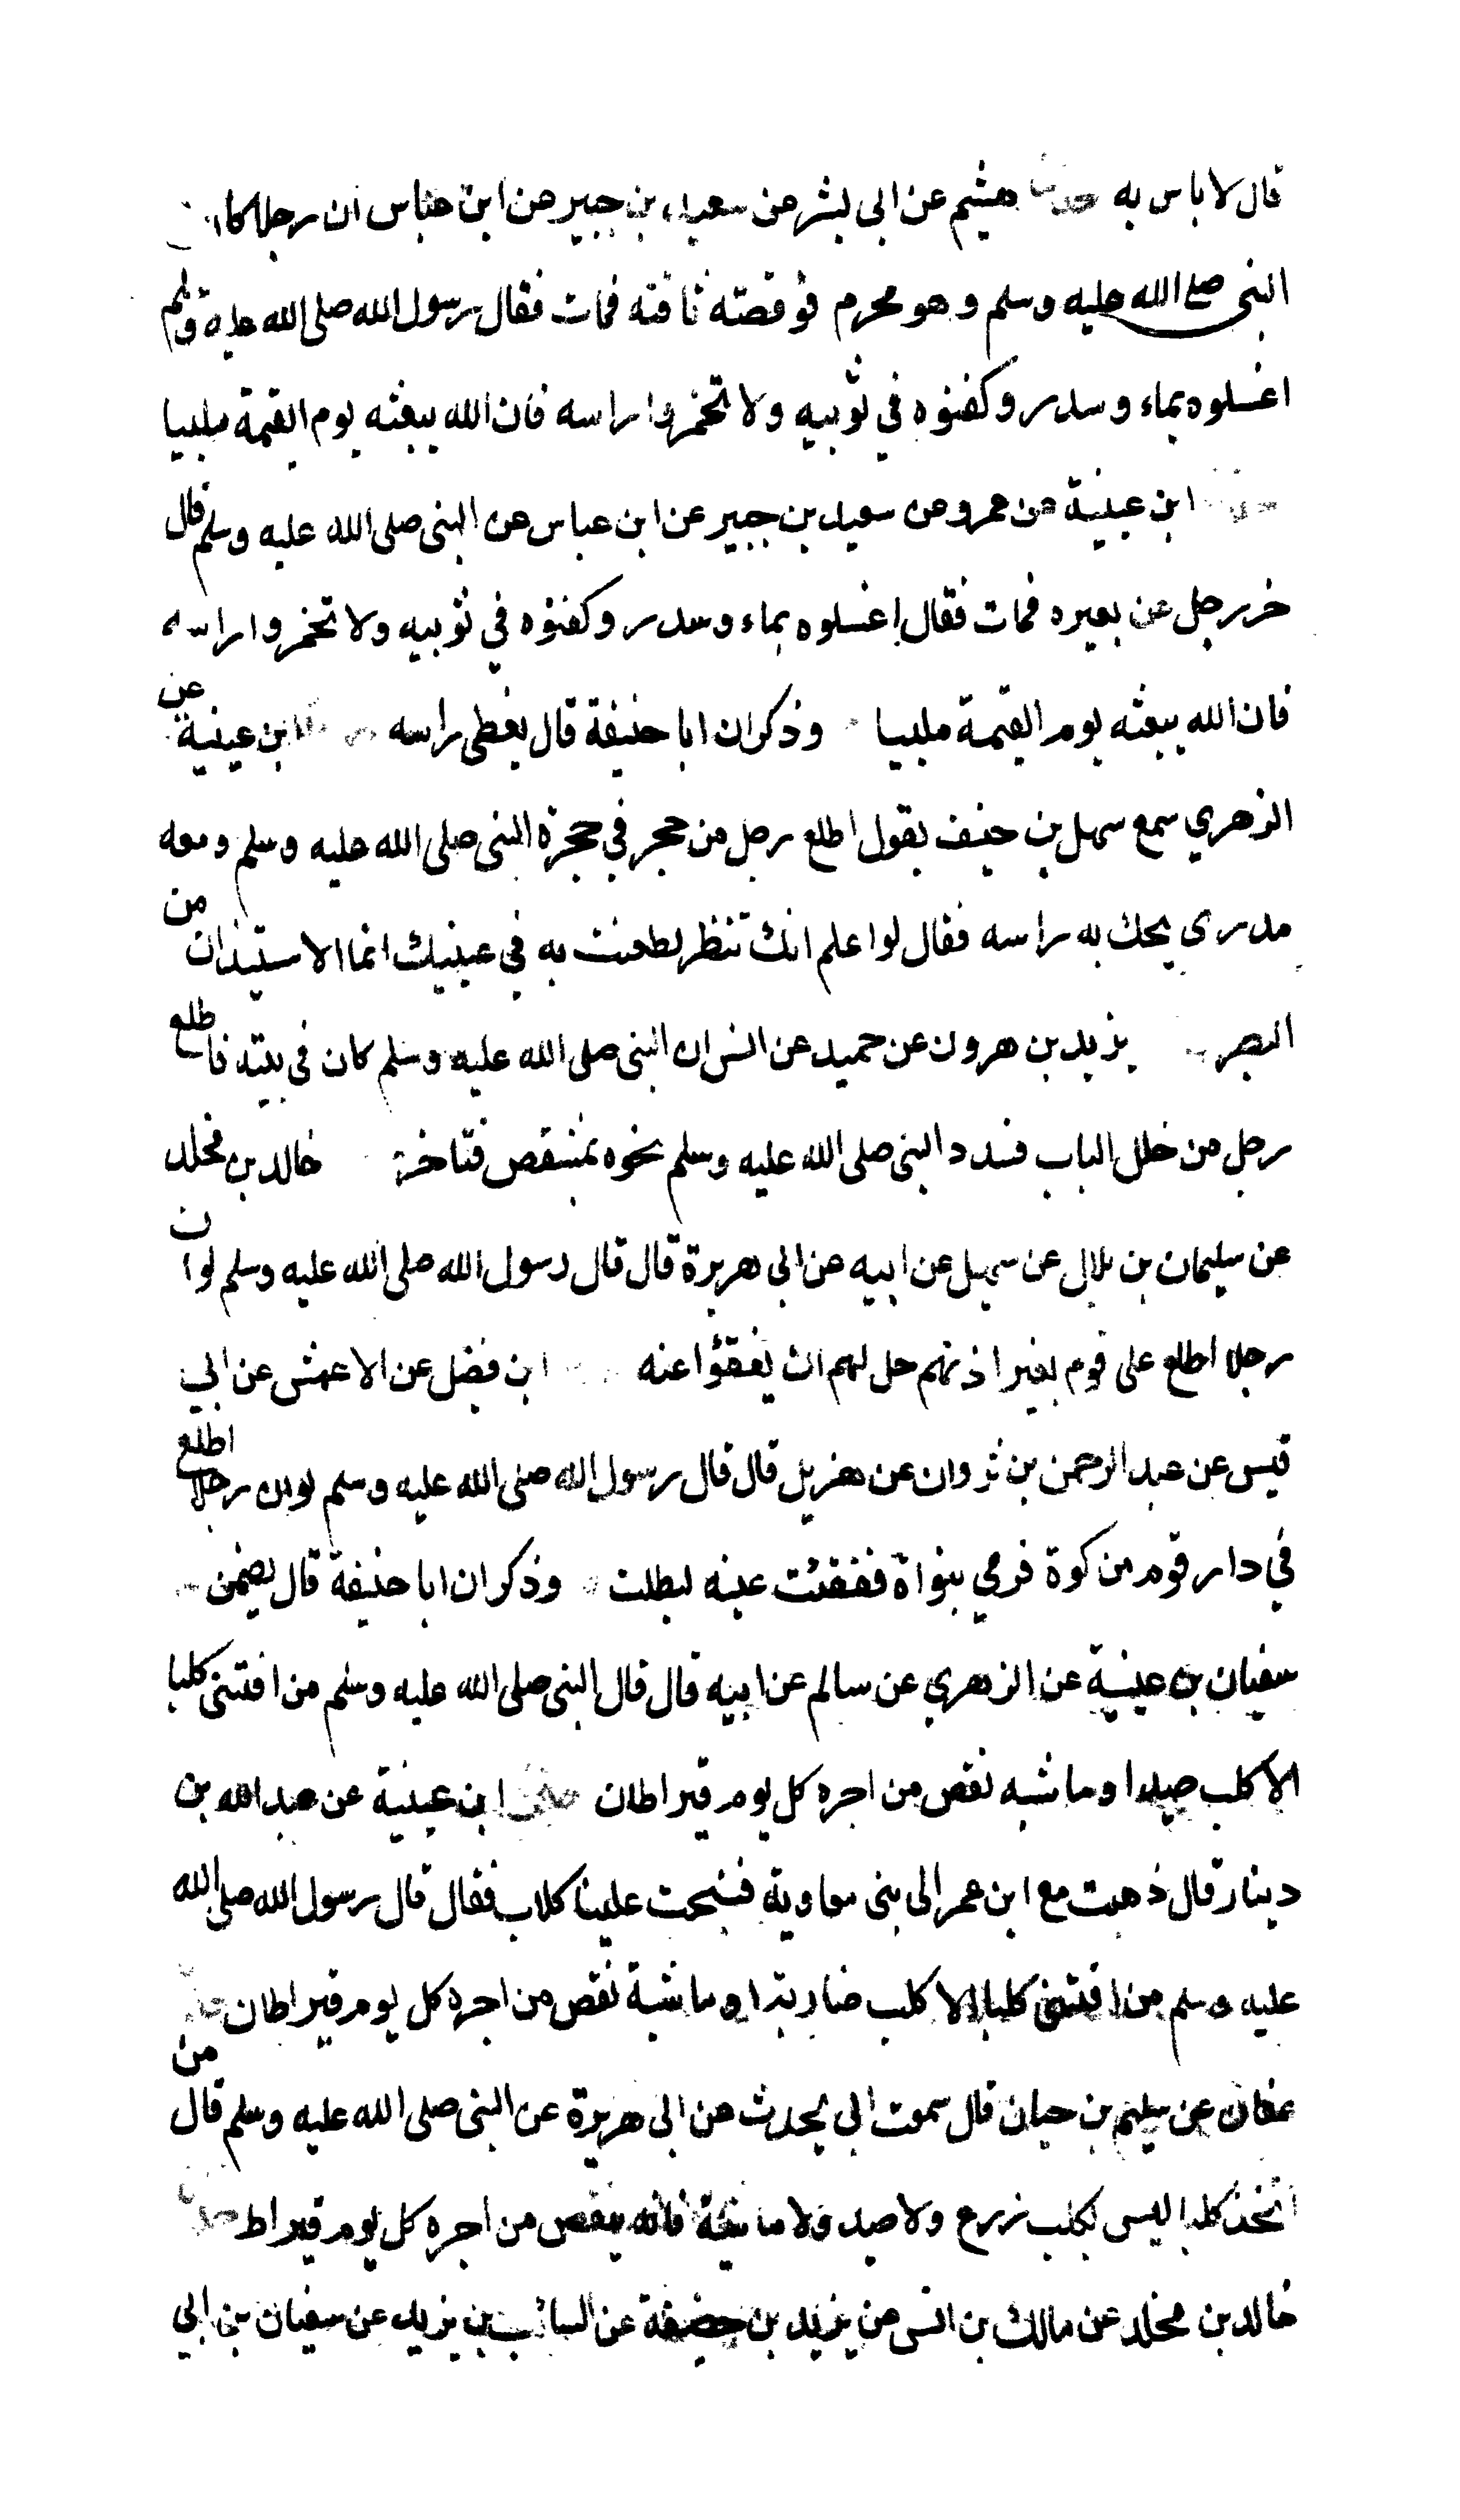 قال لا باس به حدثنا هشيم عن ابى بشر عن سعيد بن جبير عن ابن عباس ان رجلا كان
النبى صلى الله عليه وسلم وهو محرم فوقصته ناقته فمات فقال رسول الله صلى الله عليه وسلم
اغسلوه بماء وسدر وكفنوه في ثوبيه ولا تخمروا راسه فان الله يبعثه يوم القيمة ملبيا
ابن عيينة عن عمرو عن سعيد بن جبير عن ابن عباس عن النبى صلى الله عليه وسلم قال
خر رجل عن بعيره فمات فقال اغسلوه بماء وسدر وكفنوه في ثوبيه ولا تخمروا راسه
فان الله يبعثه يوم القيمة ملبيا وذكر ان ابا حنيفة قال يغطى راسه ابن عيينة عن
الزهري سمع سهل بن حنيف يقول اطلع رجل من حجر في حجرة النبى صلى الله عليه وسلم ومعه
مدرى يحك به راسه فقال لو اعلم انك تنظر لطعنت به في عينيك انما الاستيذان من
البصر يزيد بن هرون عن حميد عن انس ان النبى صلى الله عليه وسلم كان في بيته فاطلع
رجل من خلل الباب فسدد النبى صلى الله عليه وسلم نحوه بمشقص فتاخر خالد بن مخلد
عن سليمان بن بلال عن سهيل عن ابيه عن ابى هريرة قال قال رسول الله صلى الله عليه وسلم لو ان
رجلا اطلع على قوم بغير اذنهم حل لهم ان يفقؤا عنه ابن فضل عن الاعمش عن ابي
قيس عن عبد الرحمن بن ثروان عن هزيل قال قال رسول الله صلى الله عليه وسلم لو ان رجلا اطلع
في دار قوم من كوة فرمي بنواة ففقئت عينه لبطلت وذكر ان ابا حنيفة قال يضمن
سفيان بن عيينة عن الزهري عن سالم عن ابيه قال قال النبى صلى الله عليه وسلم من اقتنى كلبا
الا كلب صيد او ماشيه نقص من اجره كل يوم قيراطان حدثنا ابن عيينة عن عبد الله بن
دينار قال ذهبت مع ابن عمر الى بنى معاوية فنبحت علينا كلاب فقال قال رسول الله صلى الله
عليه وسلم من اقتنى كلبا الا كلب ضارية او ماشية نقص من اجره كل يوم قيراطان
عفان عن سليم بن حيان قال سمعت ابى يحدث عن ابى هريرة عن النبى صلى الله عليه وسلم قال من
اتخذ كلبا ليس بكلب زرع ولا صيد ولا ماشية فانه ينقص من اجره كل يوم قيراط حدثنا
خالد بن مخلد عن مالك بن انس عن يزيد بن خصيفة عن السائب بن يزيد عن سفيان بن ابي